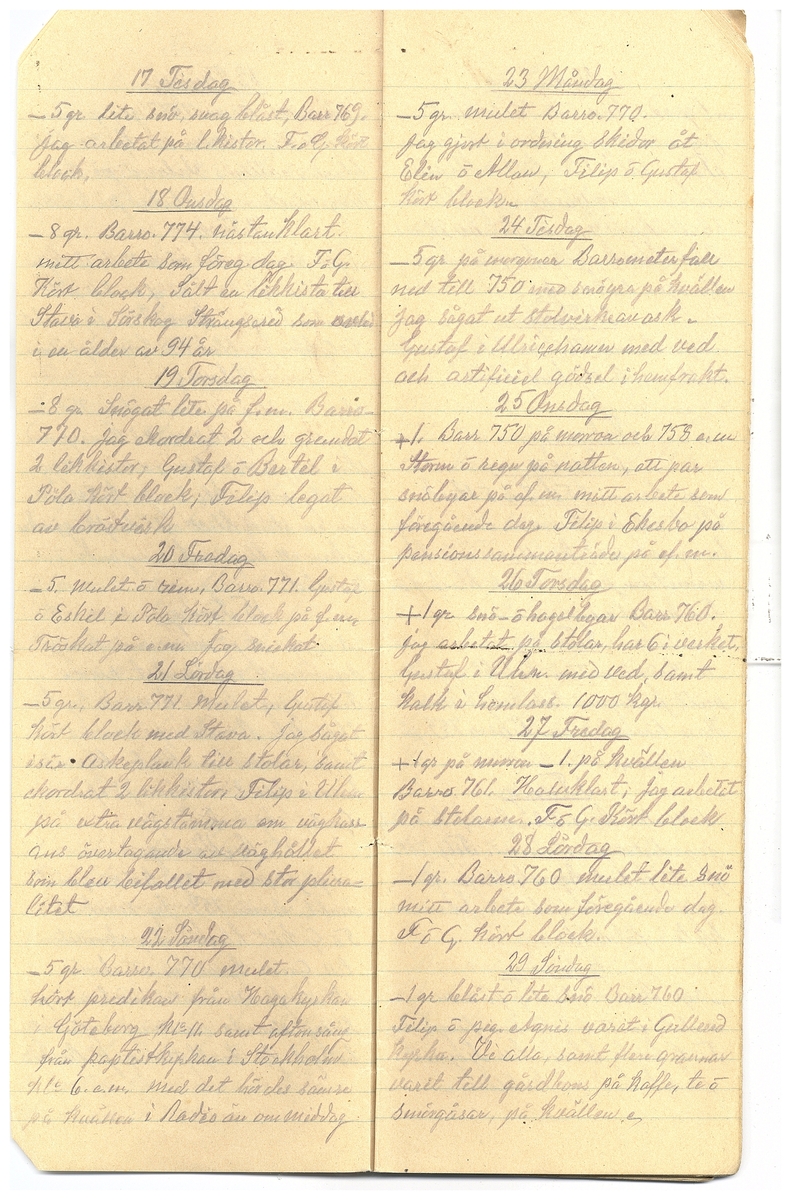 17 Tisdag
-5 gr lite snö, svag blåst, Barr 769.
Jag arbetat på likkistor. F. o G. kört
block,
18 Onsdag
-8 gr. Barro. 774. nästan klart.
mitt arbete som föreg dag. F. G.
Kört block, Sålt en likkista till
Stava i Sörskog Strängsered som
i en ålder av 94 år
19 Torsdag
-8 gr Snögat lite på f.m. Barro-
770. Jag 2 och grundat
2 likkistor, Gustaf ö Bertil i
Pöla kört block, Filip legat
av
20 Fredag
-5. Mulet ö rim, Barro. 771. Gustaf
ö Eskil i Pöla kört block på f.m
Tröskat på e.m Jag snickat
21 Lördag
-5 gr, Barr 771 Mulet, Gustaf
kört block med Stava. Jag sågat
isär Askplank till stolar, samt
2 likkistor, Filip i Ulr
på extra vägstämma om vägkass
ans övertagande av väghållet
som blev bifallet med stor plura-
litet
22 Söndag
-5 gr. Barro. 770 mulet.
hört predikan från Hagakyrkan
i Göteborg kl. 11 samt aftonsång
från paptistkyrkan i Stockholm
kl. 6. e.m. med det hördes sämre
på kvällen i Radio än om middag
23 Måndag
-5 gr mulet Barro. 770.
Jag gjort i ordning skidor åt
Elin ö Allan, Filip ö Gustaf
kört block
24 Tisdag
-5 gr på morgonen Barrometer fall
ned till 750 med snöyra på kvällen
jag sågat ut stolvirke av ask.
Gustaf i Ulricehamn med ved
och artificiel gödsel i hemfrakt.
25 Onsdag
+1. Barr 750 på morron och 758 e.m
Storm ö regn på natten, ett par
snöbyar på ef.m. mitt arbete som
föregående dag. Filip i Ekesbo på
pensionssammanträde på ef.m.
26 Torsdag
+1 gr snö- ö hagelbyar Barr 760.
Jag arbetat på stolar, har 6 i verket,
Gustaf i Ulr. med ved, samt
kalk i hemlass. 1000 kgr.
27 Fredag
+1 gr på morron -1. på kvällen
Barro. 761. Halvklart, Jag arbetat
på stolarna. F ö G. Kört block
28 Lördag
-1 gr. Barro 760 mulet lite snö
mitt arbete som föregående dag.
F ö G. kört block.
29 Söndag
-1 gr blåst ö lite snö Barr 760
Filip ö pig. Agnes varat i Gullered
kyrka. Vi alla, samt flera grannar
varit till gårdbons på kaffe, te ö
smörgåsar, på kvällen